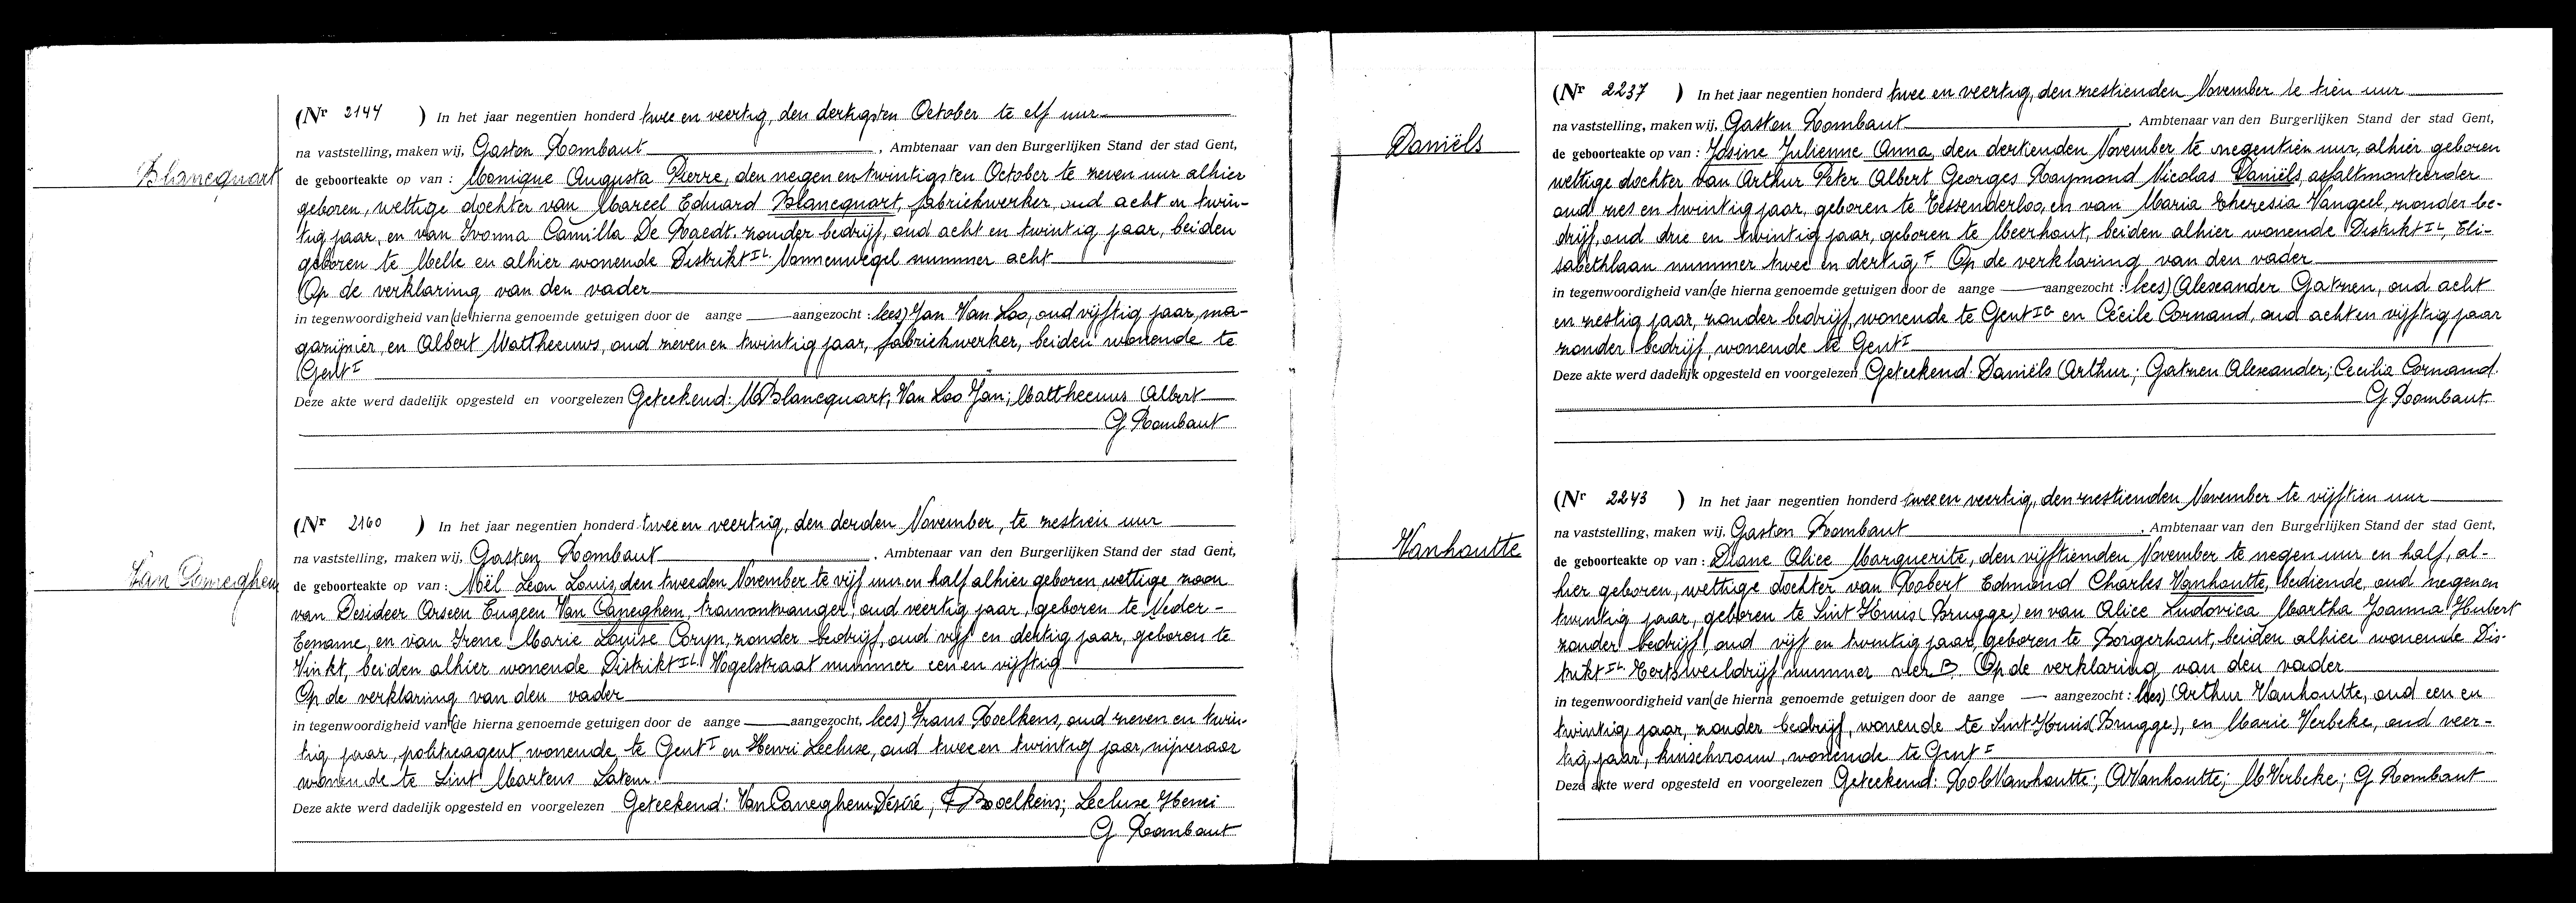 Blancquart
(Nr 2144 ) In het jaar negentien honderd twee en veertig, den dertigsten October te elf uur
na vaststelling, maken wij, Gaston Rombaut, Ambtenaar van den Burgerlijken Stand der stad Gent,
de geboorteakte op van : Monique Augusta Pierre, den negen en twintigsten October te zeven uur alhier
geboren, wettige dochter van Marcel Eduard Blancquart, fabriekwerker, oud acht en twin-
tig jaar, en van Ivonna Camilla De Raedt. zonder bedrijf, oud acht en twintig jaar, beiden
geboren te Melle en alhier wonende Distrikt IL Nonnenwegel nummer acht
Op de verklaring van den vader
in tegenwoordigheid van (de hierna genoemde getuigen door de aange aangezocht : lees) Jan Van Loo, oud vijftig jaar, ma-
gazijnier, en Albert Mattheeuws, oud zeven en twintig jaar, fabriekwerker, beiden wonende te
Gent I
Deze akte werd dadelijk opgesteld en voorgelezen Geteekend: M Blancquart; Van Loo Jan; Mattheeuws Albert
G Rombaut
Van Caneghem
(Nr 2160 ) In het jaar negentien honderd twee en veertig, den derden November, te zestien uur
na vaststelling, maken wij, Gaston Rombaut, Ambtenaar van den Burgerlijken Stand der stad Gent,
de geboorteakte op van : Noël Leon Louis, den tweeden November te vijf uur en half alhier geboren, wettige zoon
van Desideer Arseen Eugeen Van Caneghem, tramontvanger, oud veertig jaar, geboren te Neder-
Eename, en van Irene Marie Louise Coryn, zonder bedrijf, oud vijf en dertig jaar, geboren te
Vinkt, beiden alhier wonende Distrikt IL Vogelstraat nummer een en vijftig
Op de verklaring van den vader
in tegenwoordigheid van (de hierna genoemde getuigen door de aange aangezocht, lees) Frans Roelkens, oud zeven en twin-
tig jaar, politieagent, wonende te Gent I en Henri Lecluse, oud twee en twintig jaar, nijveraar
wonende te Sint Martens Latem.
Deze akte werd dadelijk opgesteld en voorgelezen Geteekend: Van Caneghem Désiré; F Roelkens; Lecluse Henri
G Rombaut
Daniëls
(Nr 2237 ) In het jaar negentien honderd twee en veertig, den zestienden November te tien uur
na vaststelling, maken wij, Gaston Rombaut, Ambtenaar van den Burgerlijken Stand der stad Gent,
de geboorteakte op van : Josine Julienne Anna, den dertienden November te negentien uur, alhier geboren
wettige dochter van Arthur Peter Albert Georges Raymond Nicolas Daniëls, asfaltmonteerder
oud zes en twintig jaar, geboren te Tessenderloo, en van Maria Theresia Vangeel, zonder be-
drijf, oud drie en twintig jaar, geboren te Meerhout, beiden alhier wonende Distrikt IL, Eli-
sabethlaan nummer twee en dertig F. Op de verklaring van den vader
in tegenwoordigheid van (de hierna genoemde getuigen door de aange aangezocht : lees) Alexander Gatzen, oud acht
en zestig jaar, zonder bedrijf, wonende te Gent IG en Cécile Cornand, oud acht en vijftig jaar
zonder bedrijf wonende te Gent I
Deze akte werd dadelijk opgesteld en voorgelezen Geteekend: Daniëls Arthur; Gatzen Alexander; Cecilia Cornand.
G Rombaut.
Vanhoutte
(Nr 2243 ) In het jaar negentien honderd twee en veertig, den zestienden November te vijftien uur
na vaststelling, maken wij, Gaston Rombaut, Ambtenaar van den Burgerlijken Stand der stad Gent,
de geboorteakte op van : Diane Alice Marguerite, den vijftienden November te negen uur en half, al-
hier geboren, wettige dochter van Robert Edmond Charles Vanhoutte, bediende, oud negen en
twintig jaar, geboren te Sint Kruis (Brugge) en van Alice Ludovica Martha Joanna Hubert
zonder bedrijf, oud vijf en twintig jaar, geboren te Borgerhout, beiden alhier wonende Dis-
trikt IL nummer vier B. Op de verklaring van den vader
in tegenwoordigheid van (de hierna genoemde getuigen door de aange aangezocht : lees) Arthur Vanhoutte, oud een en
twintig jaar, zonder bedrijf, wonende te Sint Kruis (Brugge), en Marie Verbeke, oud veer-
tig jaar, kuischvrouw, wonende te Gent I
Deze akte werd opgesteld en voorgelezen Geteekend: Rob Vanhoutte; A Vanhoutte; M Verbeke; G Rombaut